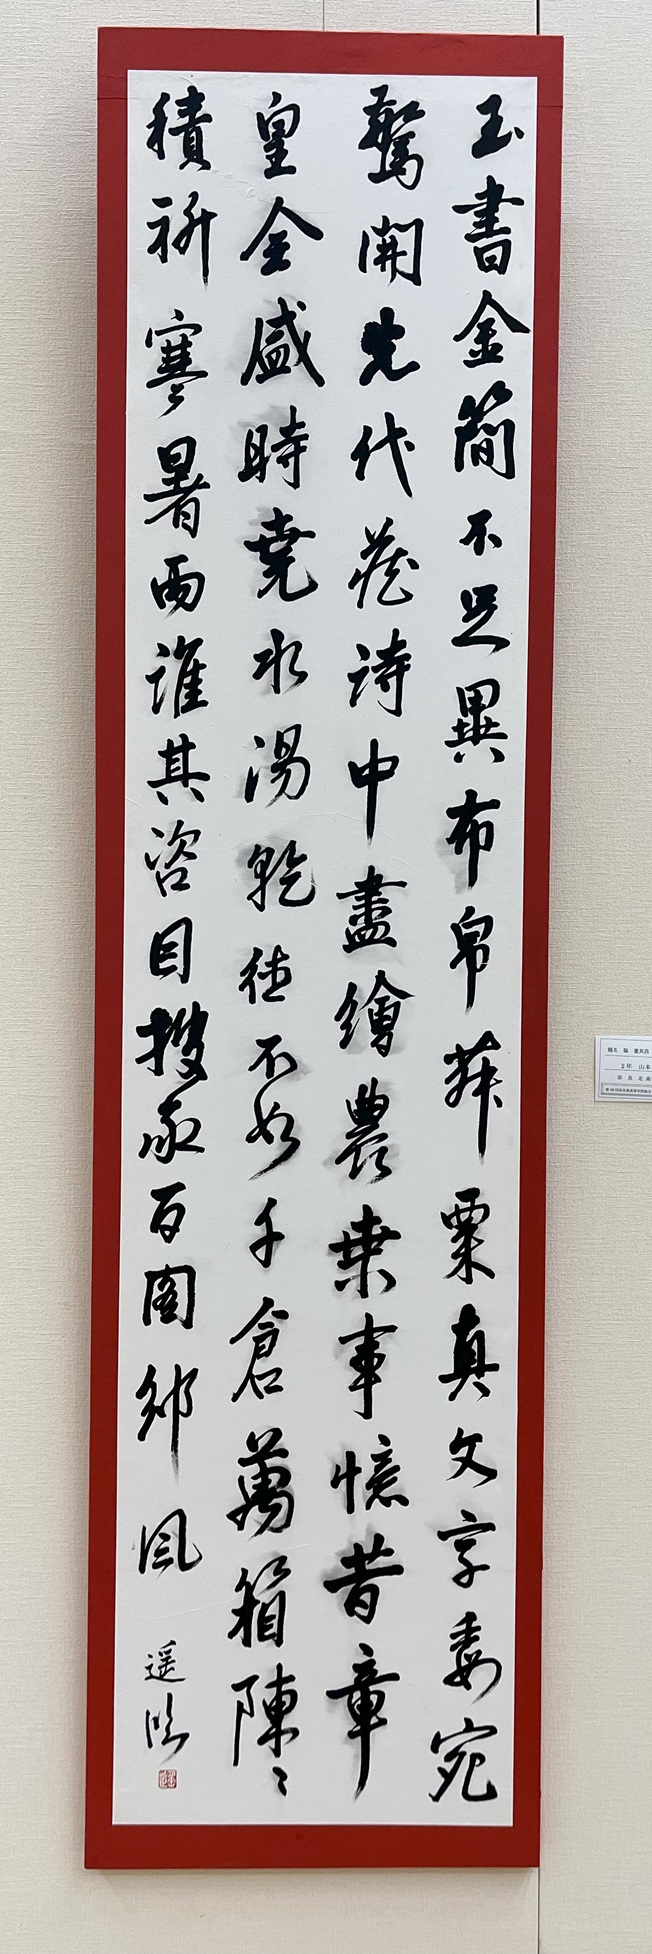 玉書金簡不足異布帛菽粟真文字委宛
驚開先代藏詩中盡繪農桒事憶昔章
皇全盛時堯水湯乾徒不如千倉萬箱陳〻
積祈寒暑雨誰其咨目搜百圖邠風
遥臨
題名 臨 董其昌
2年 山本